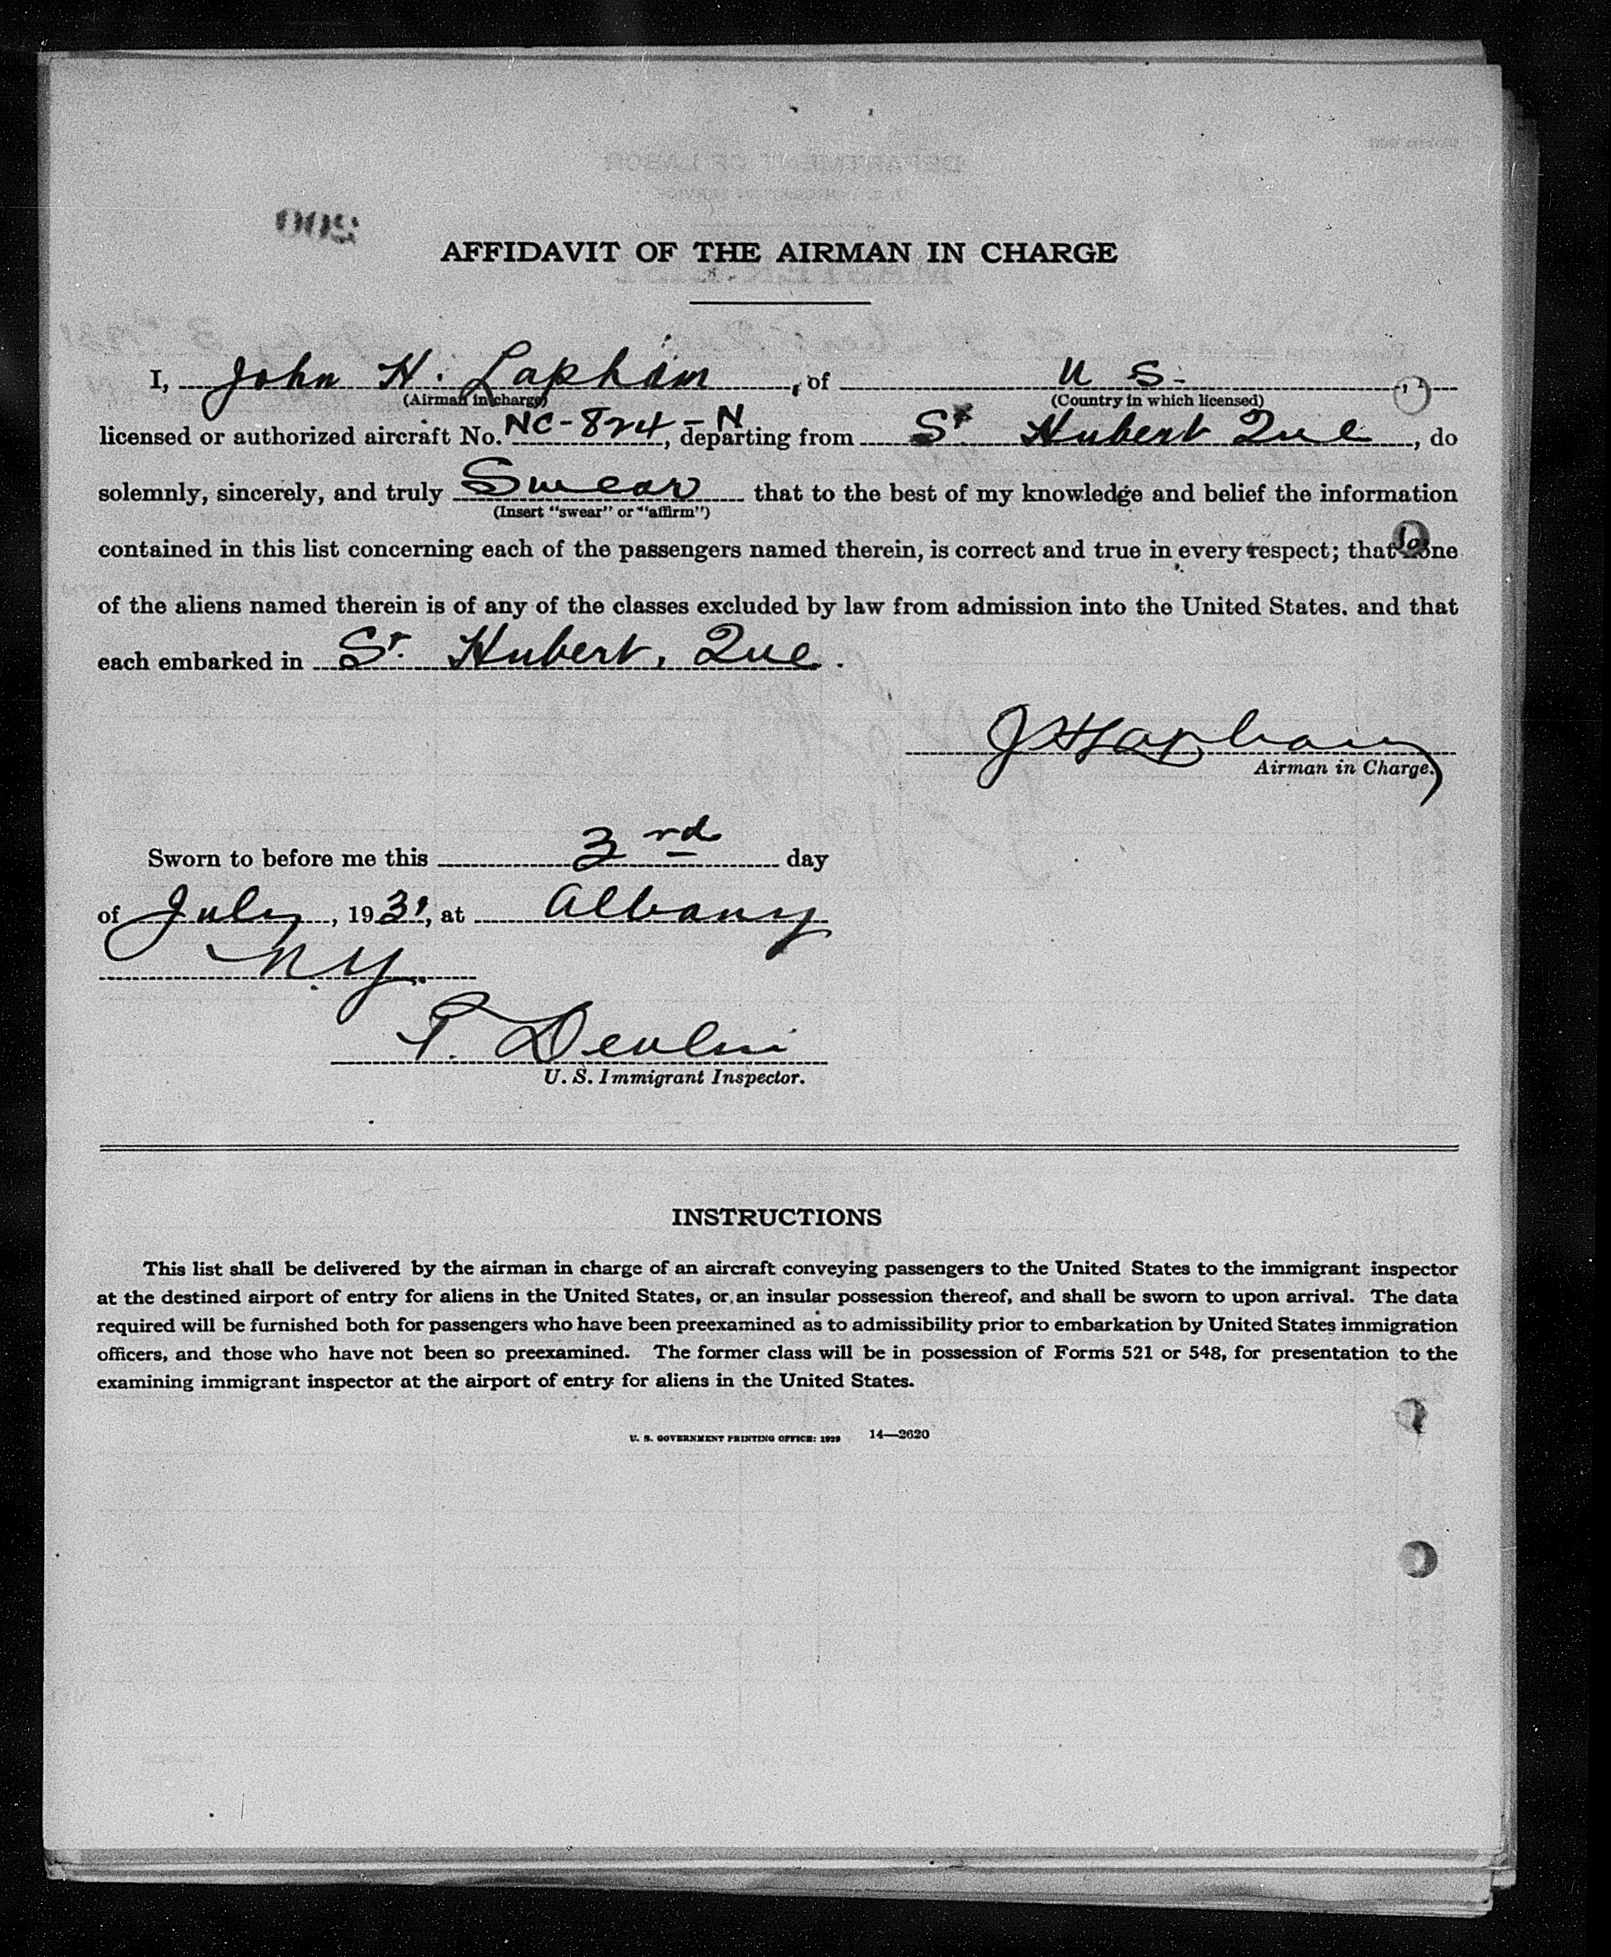 AFFIDAVIT OF THE AIRMAN IN CHARGE
I, John H. Lapham, of U S.
(Airman in charge) (Country in which licensed)
licensed or authorized aircraft No. NC-824-N, departing from St Hubert Que, do
solemnly, sincerely, and truly Swear that to the best of my knowledge and belief the information
(Insert "swear" or "affirm")
contained in this list concerning each of the passengers named therein, is correct and true in every respect; that none
of the aliens named therein is of any of the classes excluded by law from admission into the United States. and that
each embarked in St. Hubert, Que.
J H Lapham
Airman in Charge.
Sworn to before me this 3rd day
of July, 1931, at Albany
N.Y.
P. Devlin
U. S. Immigrant Inspector.
INSTRUCTIONS
This list shall be delivered by the airman in charge of an aircraft conveying passengers to the United States to the immigrant inspector
at the destined airport of entry for aliens in the United States, or an insular possession thereof, and shall be sworn to upon arrival. The data
required will be furnished both for passengers who have been preexamined as to admissibility prior to embarkation by United States immigration
officers, and those who have not been so preexamined. The former class will be in possession of Forms 521 or 548, for presentation to the
examining immigrant inspector at the airport of entry for aliens in the United States.
U. S. GOVERNMENT PRINTING OFFICE: 1929 14—2620